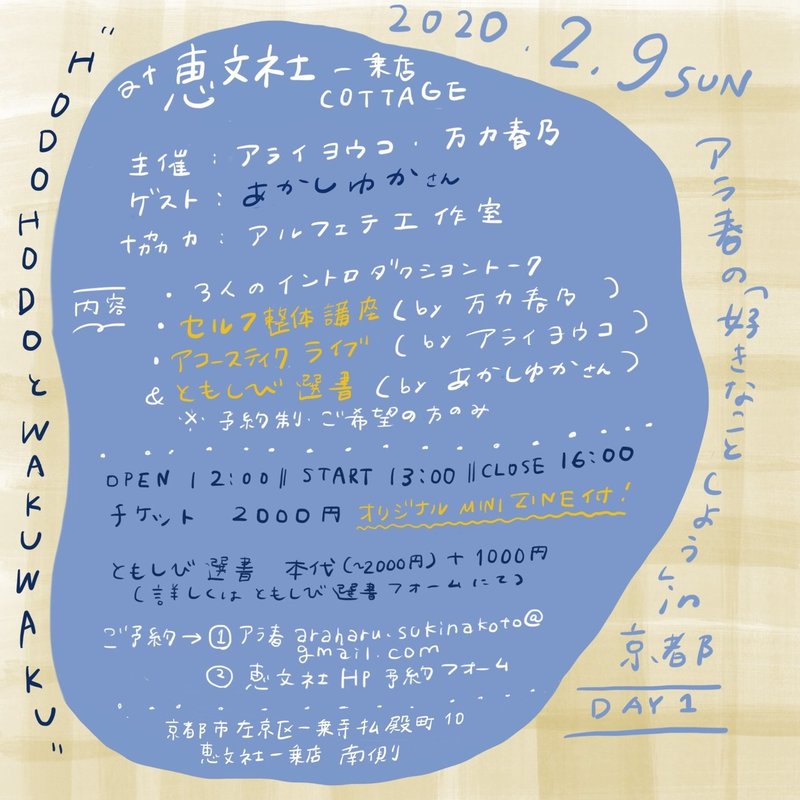 2020.2.9 SUN
アラ春の「好きなことしよう」in
京都
DAY1
"HODOHODOとWAKUWAKU"
at 恵文社 一乗店
COTTAGE
主催：アライヨウコ・万力春乃
ゲスト：あかしゆかさん
協力：アルフェテ工作室
内容
・3人のイントロダクショントーク
・セルフ整体講座(by 万力春乃)
・アコースティックライブ(by アライヨウコ)
&ともしび選書(by あかしゆかさん)
※予約制・ご希望の方のみ
OPEN 12:00 || START 13:00 || CLOSE 16:00
チケット 2000円 オリジナルMINI ZINE付!
ともしび選書 本代(~2000円)+1000円
(詳しくはともしび選書フォームにて)
ご予約→①アラ春 araharu.sukinakoto@
gmail.com
②恵文社HP予約フォーム
京都市左京区一乗寺払殿町10
恵文社一乗店 南側